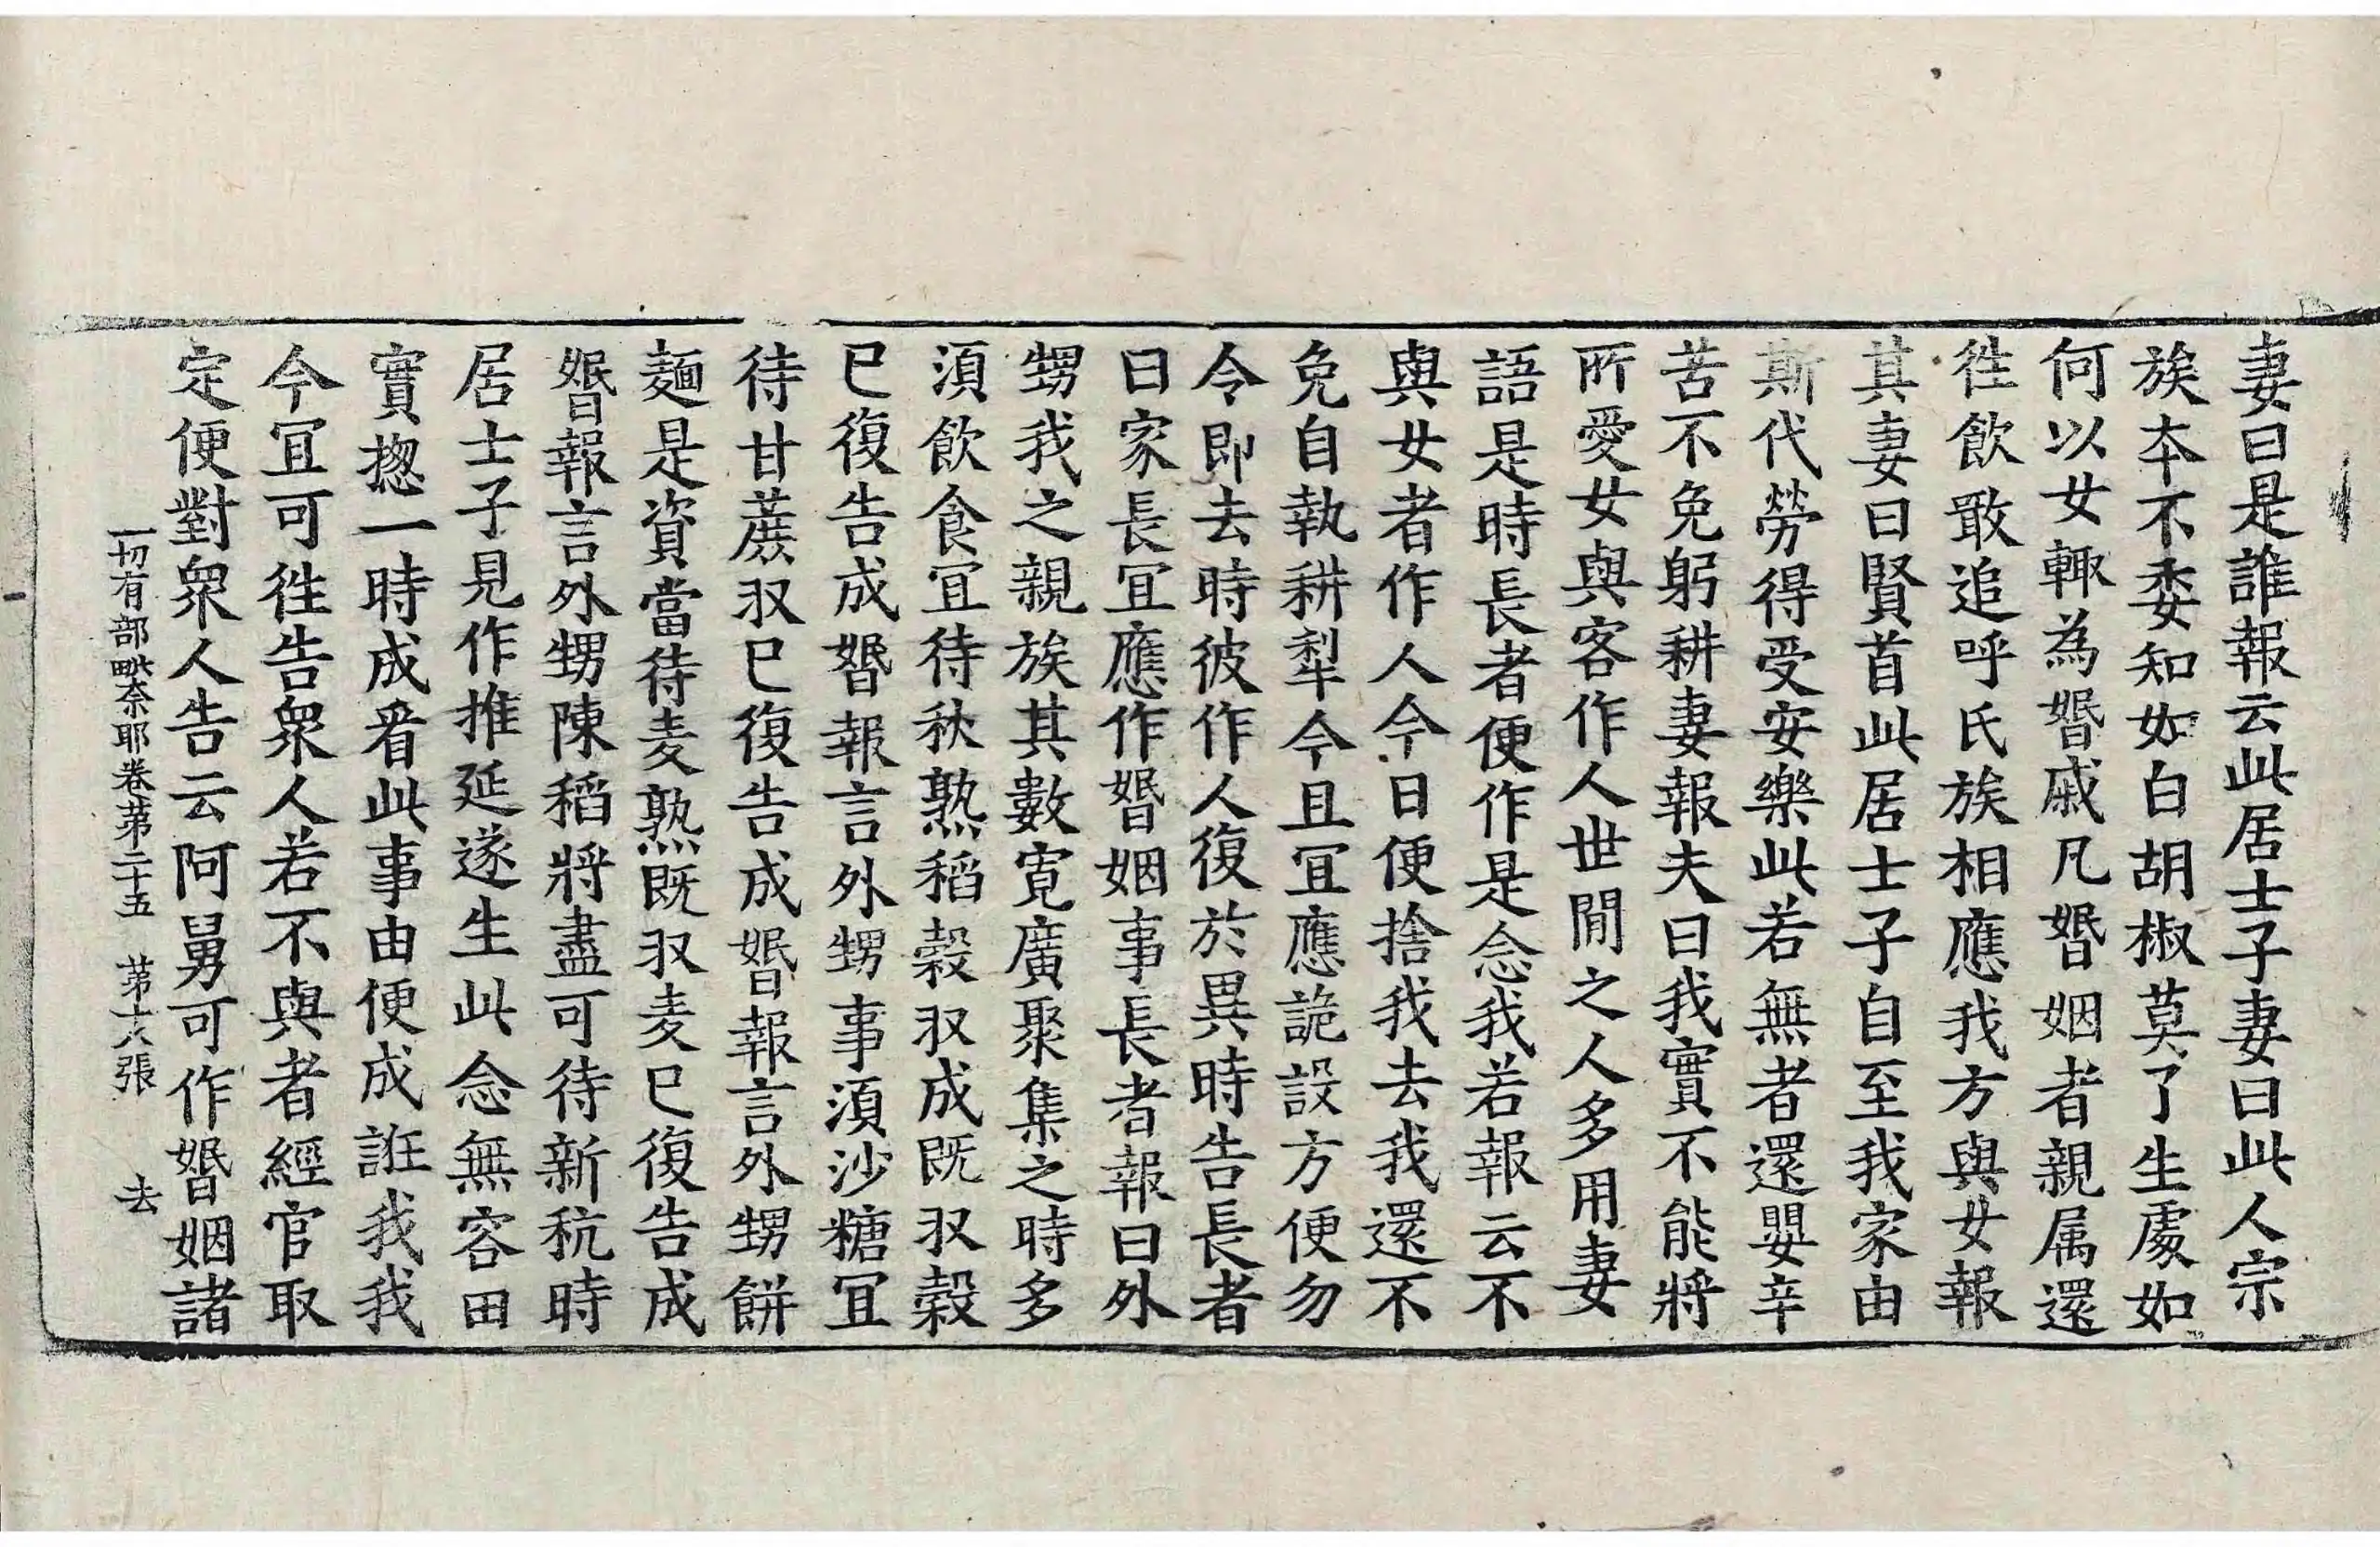 妻曰是誰報云此居士子妻曰此人宗
族本不委知如白胡椒莫了生處如
何以女輙為婚戚凡婚姻者親属還
徃飲敢追呼氏族相應我方與女報
其妻曰賢首此居士子自至我家由
斯代勞得受安樂此若無者還嬰辛
苦不免躬耕妻報夫曰我實不能將
所愛女與客作人世間之人多用妻
語是時長者便作是念我若報云不
與女者作人今日便捨我去我還不
免自執耕犁今且宜應詭設方便勿
令即去時彼作人復於異時告長者
曰家長宜應作婚姻事長者報曰外
甥我之親族其數寛廣聚集之時多
湏飲食宜待秋熟稻穀収成既収穀
已復告成婚報言外甥事湏沙糖宜
待甘蔗収已復告成婚報言外甥餅
麺是資當待麦熟既収麦已復告成
婚報言外甥陳稻將盡可待新秔時
居士子見作推延遂生此念無容田
實揔一時成看此事由便成誑我我
今宜可徃告衆人若不與者經官取
定便對衆人告云阿舅可作婚姻諸
一切有部毗奈耶卷苐二十五　苐十六張　去